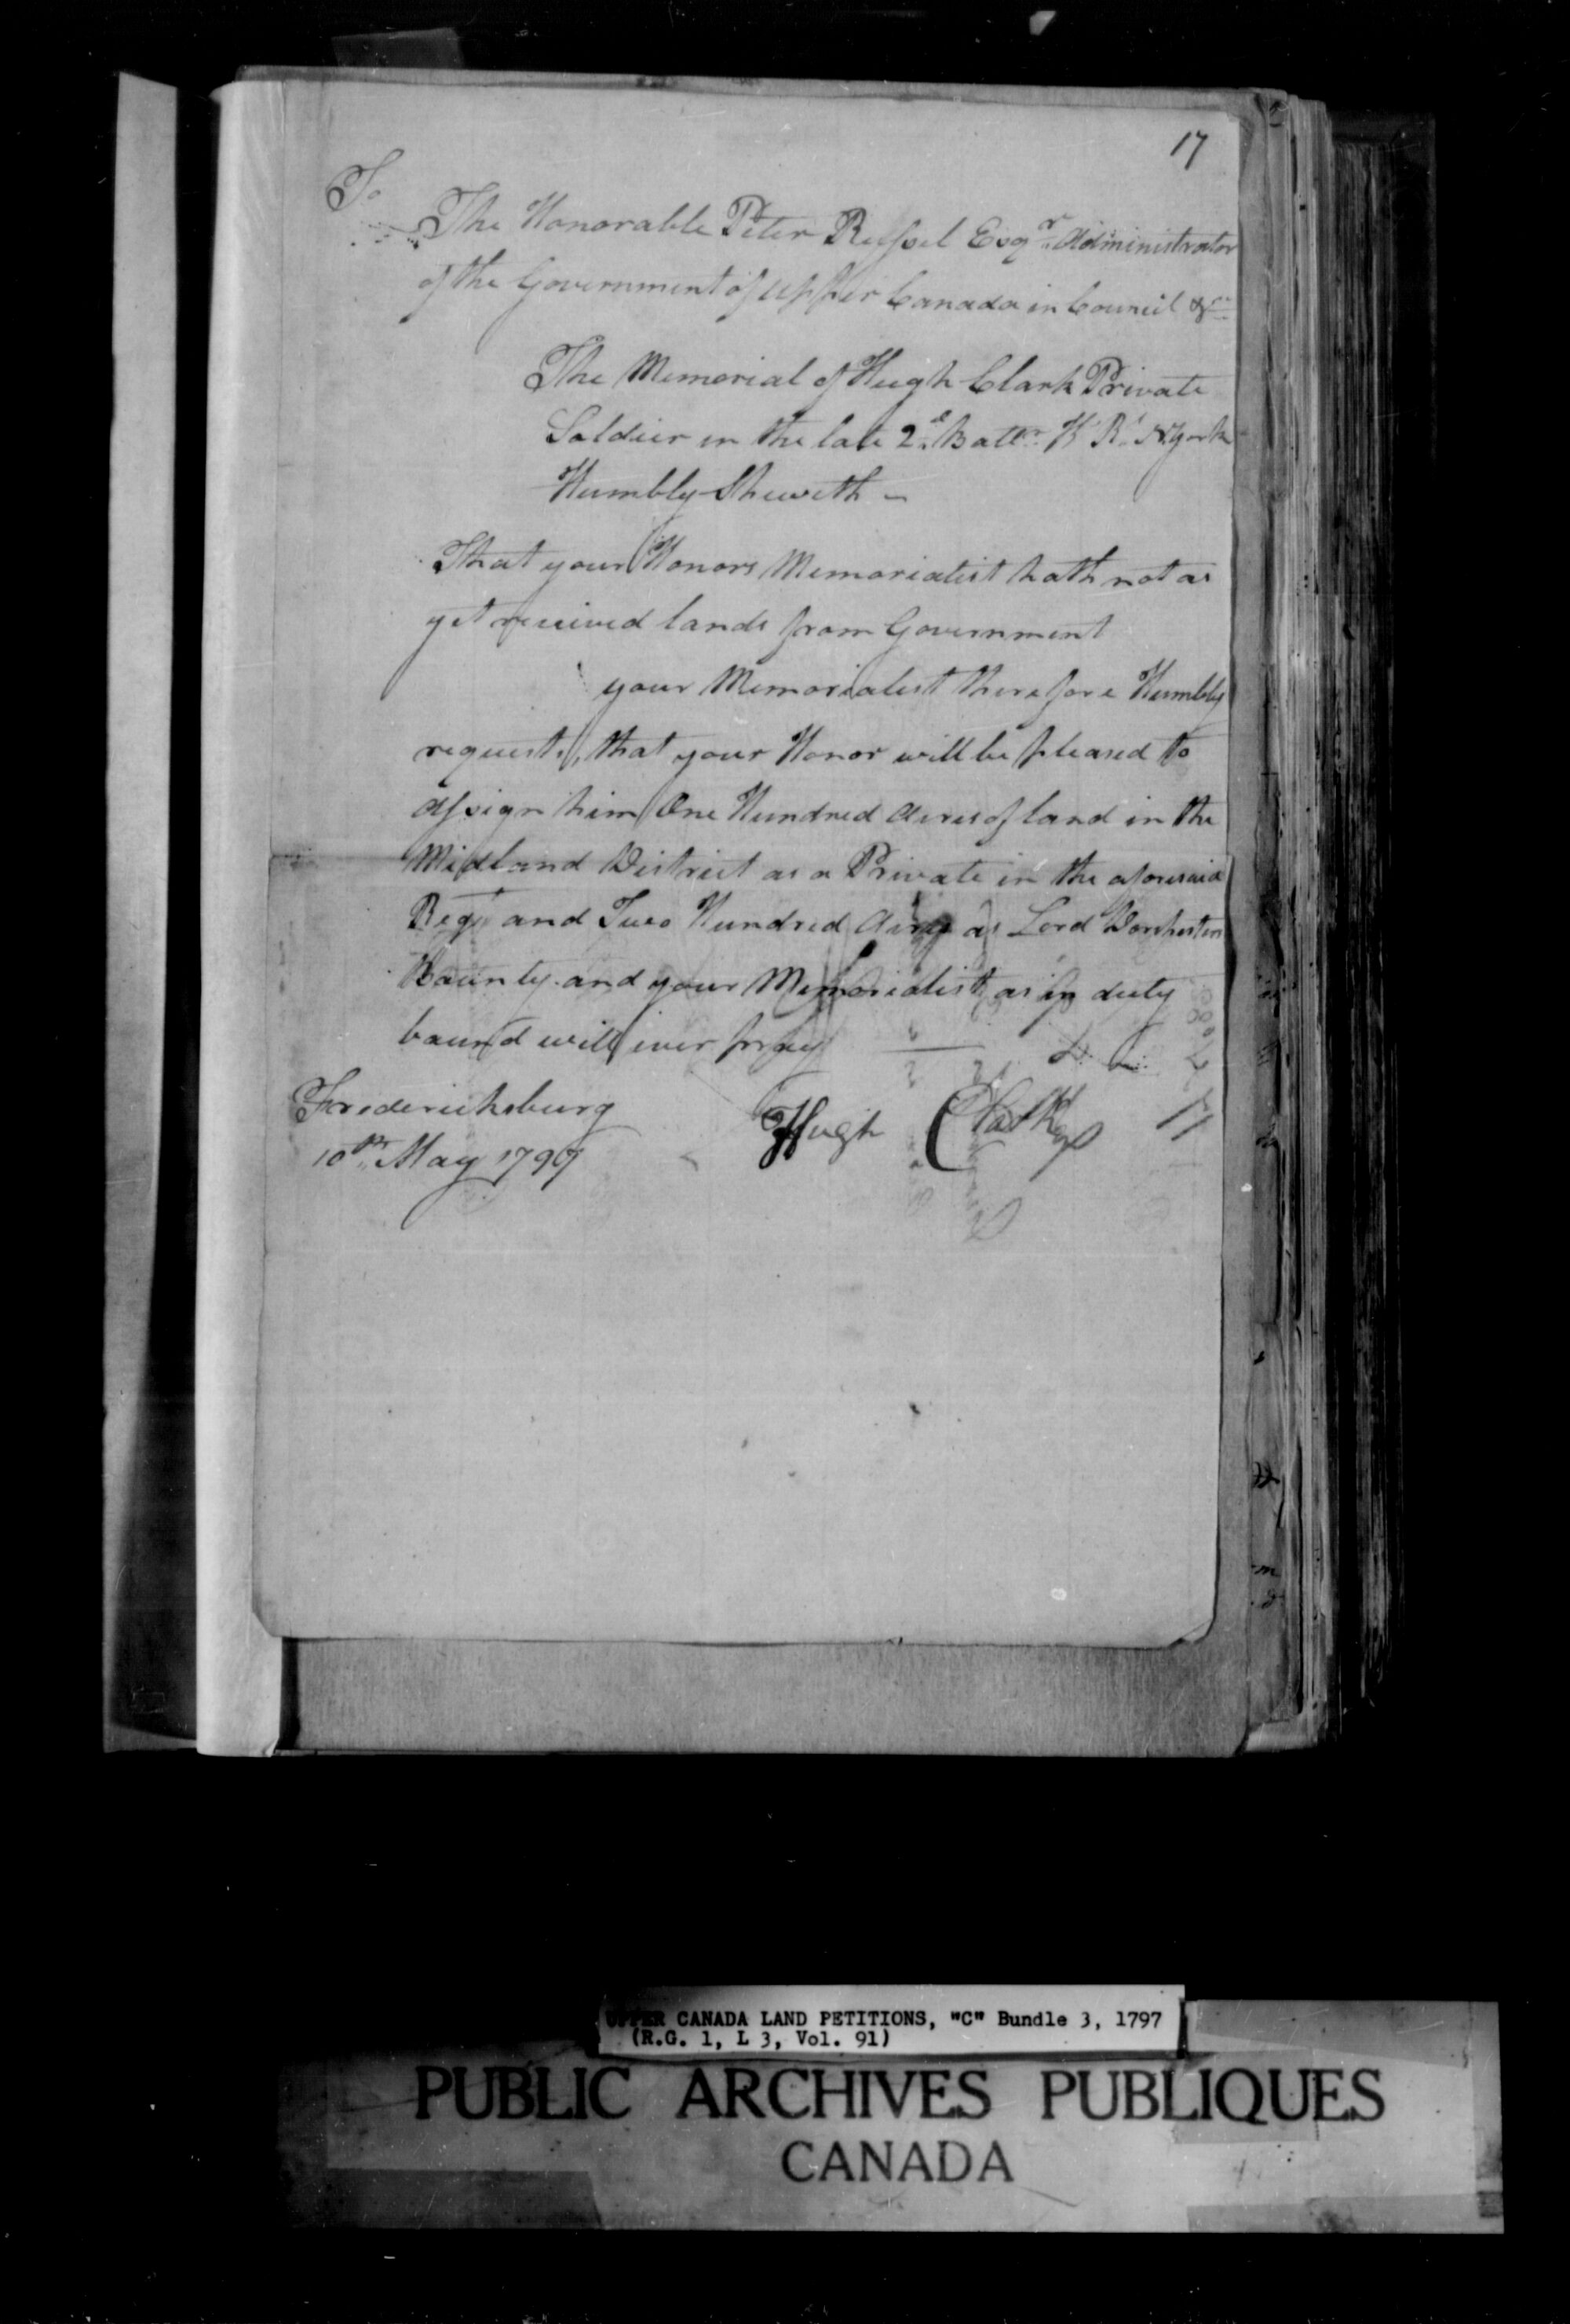 17
To
The Honorable Peter Russel Esqr Administrator
of the Government of Upper Canada in Council &c
The Memorial of Hugh Clark Private
Soldier in the late 2d Battn K Rl N York
Humbly Sheweth
That your Honors Memorialist hath not as
yet received lands from Government
your Memorialist therefore Humbly
requests, that your Honor will be pleased to
assign him One Hundred Acres of land in the
Midland District as a Private in the aforesaid
Regt and Two Hundred Acres as Lord Dorchesters
Bounty and your Memorialist as in duty
bound will ever pray
Fredericksburg
10th May 1797
Hugh Clark
UPPER CANADA LAND PETITIONS, "C" Bundle 3, 1797
(R.G. 1, L 3, Vol. 91)
PUBLIC ARCHIVES PUBLIQUES
CANADA